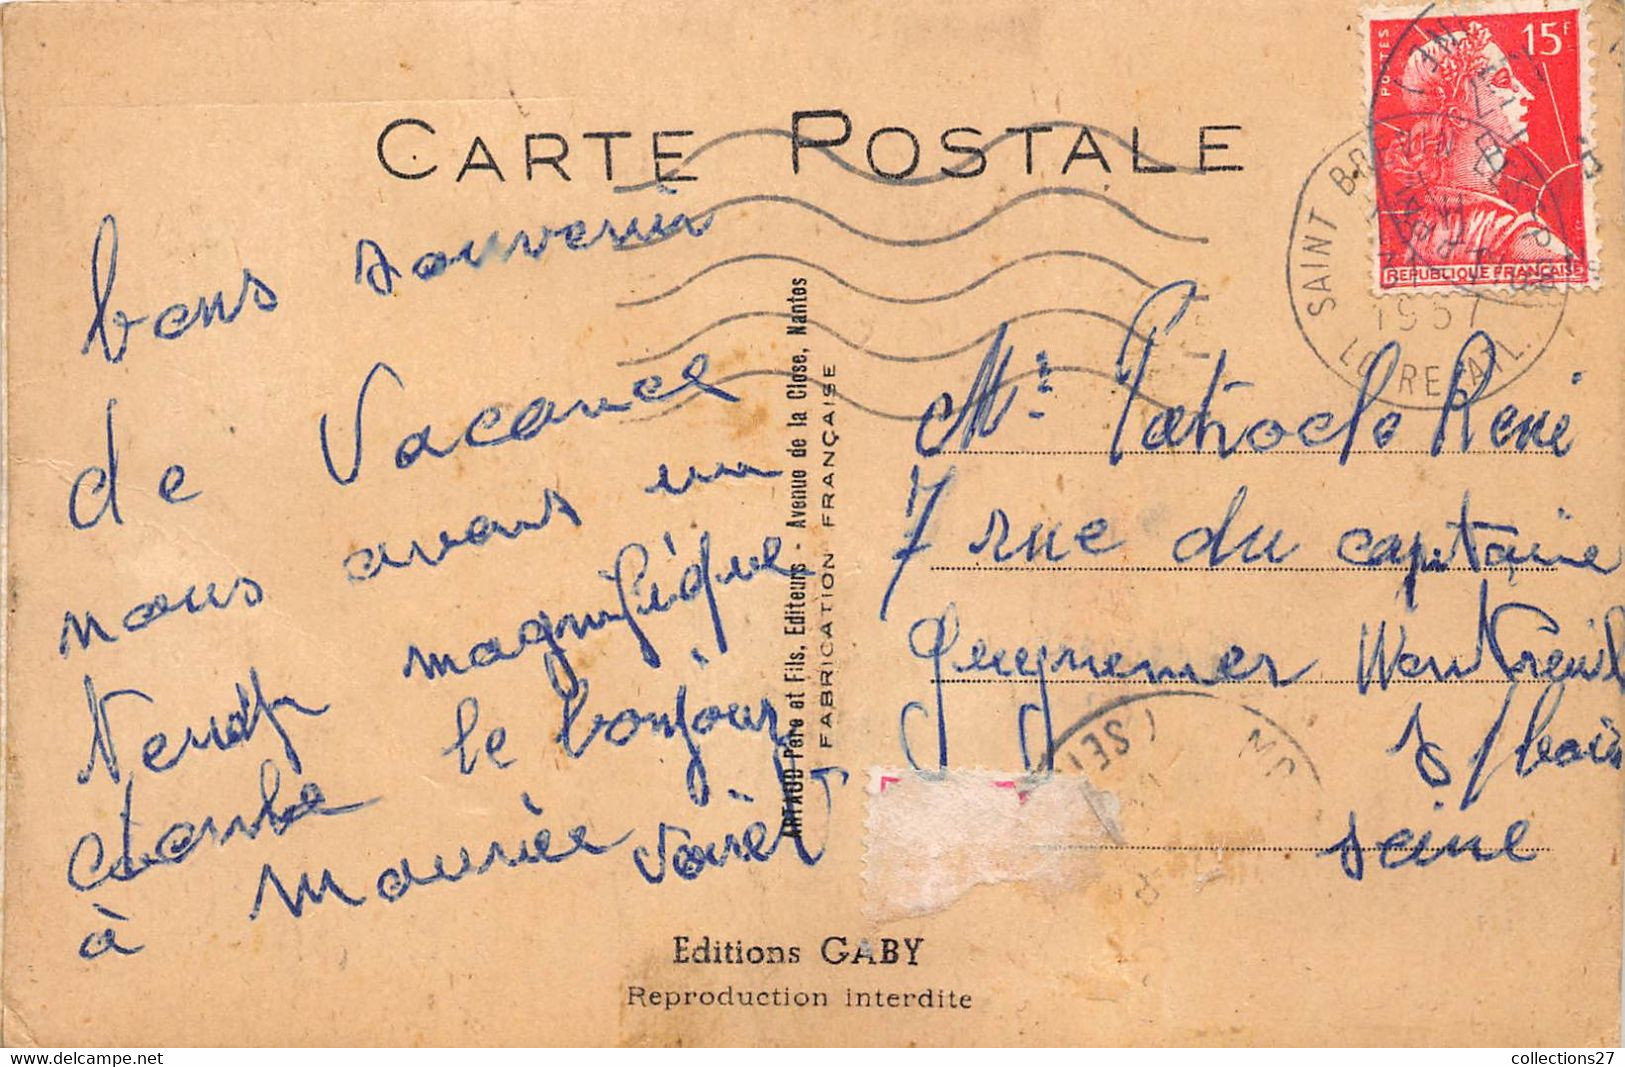 CARTE POSTALE
POSTES
15F
REPUBLIQUE FRANÇAISE
SAINT BREVIN
1957
LOIRE ATL.
bons souvenir
de Vacance
nous avons un
magnifique
Temps
le bonjour
à Maurice
ARTAUD Père et Fils, Editeurs - Avenue de la Close, Nantes
FABRICATION FRANÇAISE
Mr Patrocle René
7 rue du capitaine
Guynemer Montreuil
s/bois
seine
Editions GABY
Reproduction interdite
collections27